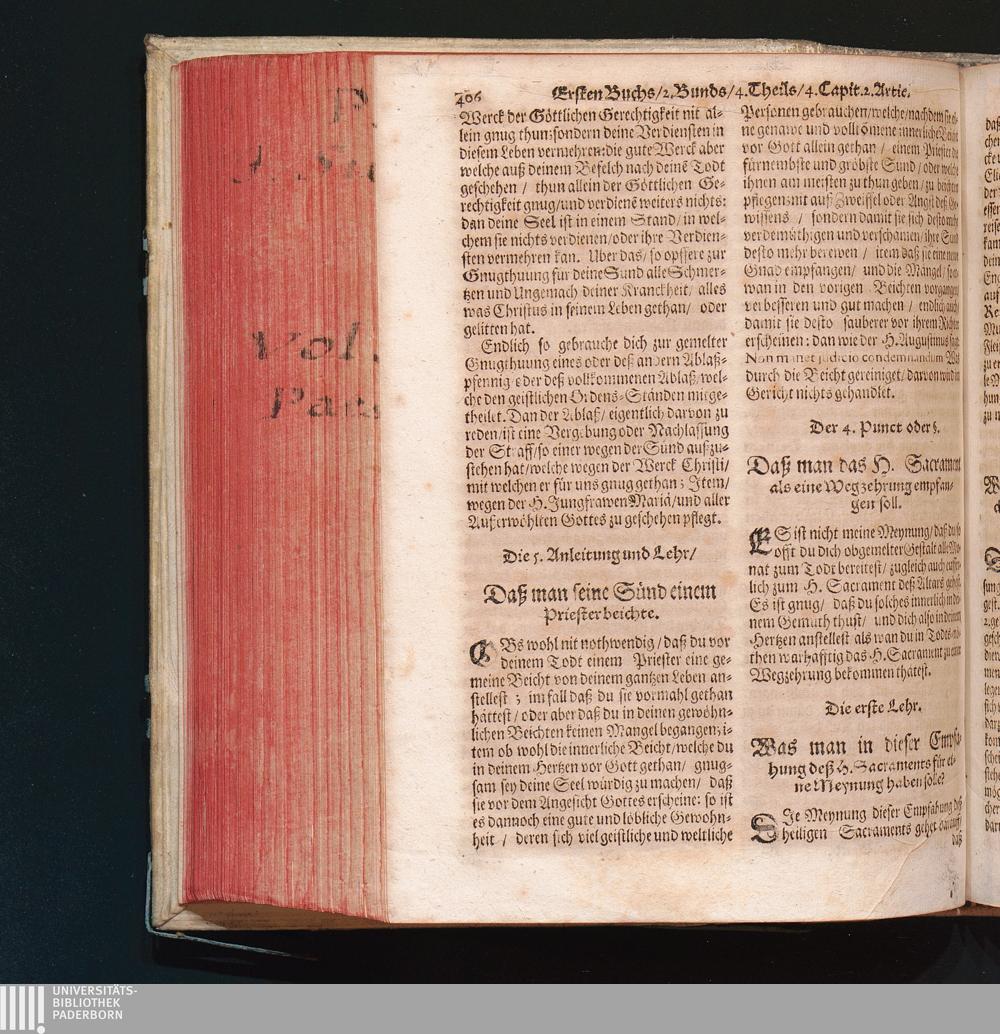 406 Ersten Buchs/2. Bunds/4. Theils/4. Capit. 2. Artic.
Werck der Göttlichen Gerechtigkeit nit al-
lein gnug thun: sondern deine Verdiensten in
diesem Leben vermehren: die gute Werck aber
welche auß deinem Befelch nach deinē Todt
geschehen / thun allein der Göttlichen Ge-
rechtigkeit gnug/und verdienē weiters nichts:
dan deine Seel ist in einem Stand/ in wel-
chem sie nichts verdienen/oder ihre Verdien-
sten vermehren kan. Uber das/ so opffere zur
Gnugthuung für deine Sünd alle Schmer-
tzen und Ungemach deiner Kranckheit/ alles
was Christus in seinem Leben gethan/ oder
gelitten hat.
Endlich so gebrauche dich zur gemelter
Gnugthuung eines oder deß andern Ablaß-
pfennig oder deß vollkommenen Ablaß/wel-
che den geistlichen Ordens-Ständen mitge-
theilet. Dan der Ablaß/ eigentlich darvon zu
reden/ist eine Vergebung oder Nachlassung
der Straff/so einer wegen der Sünd außzu-
stehen hat/welche wegen der Werck Christi/
mit welchen er für uns gnug gethan; Item/
wegen der H. Jungfrawen Mariä/und aller
Außerwöhlten Gottes zu geschehen pflegt.
Die 5. Anleitung und Lehr/
Daß man seine Sünd einem
Priester beichte.
OBs wohl nit nothwendig/ daß du vor
deinem Todt einem Priester eine ge-
meine Beicht von deinem gantzen Leben an-
stellest; im fall daß du sie vormahl gethan
hättest/ oder aber daß du in deinen gewöhn-
lichen Beichten keinen Mangel begangen; i-
tem ob wohl die innerliche Beicht/welche du
in deinem Hertzen vor Gott gethan/ gnug-
sam sey deine Seel würdig zu machen/ daß
sie vor dem Angesicht Gottes erscheine: so ist
es dannoch eine gute und löbliche Gewohn-
heit / deren sich viel geistliche und weltliche
Personen gebrauchen/welche/nachdem sie ei-
ne genawe und vollkōmene innerliche Beicht
vor Gott allein gethan / einem Priester die
fürnembste und gröbste Sünd / oder welche
ihnen am meisten zu thun geben/ zu beichten
pflegen: nit auß Zweiffel oder Angst deß Ge-
wissens / sondern damit sie sich desto mehr
verdemüthigen und verschamen/ ihre Sünd
desto mehr berewen / item daß sie eine newe
Gnad empfangen/ und die Mängel/ so et-
wan in den vorigen Beichten vorgangen
verbesseren und gut machen / endlich auch
damit sie desto sauberer vor ihrem Richter
erscheinen: dan wie der H. Augustinus sagt
Non manet judicio condemnandum Was
durch die Beicht gereiniget/ darvon wird im
Gericht nichts gehandlet.
Der 4. Punct oder §.
Daß man das H. Sacrament
als eine Wegzehrung empfan-
gen soll.
ES ist nicht meine Meynung/ daß du so
offt du dich obgemelter Gestalt alle Mo-
nat zum Todt bereitest/ zugleich auch eusser-
lich zum H. Sacrament deß Altars gehest.
Es ist gnug/ daß du solches innerlich in dei-
nem Gemüth thust/ und dich also in deinem
Hertzen anstellest als wan du in Todts-nö-
then warhafftig das H. Sacrament zu einer
Wegzehrung bekommen thätest.
Die erste Lehr.
Was man in dieser Empfa-
hung deß H. Sacraments für ei-
ne Meynung haben solle?
DIe Meynung dieser Empfahung deß
heiligen Sacraments gehet darauff/
daß
Vol.
UNIVERSITÄTS-
BIBLIOTHEK
PADERBORN